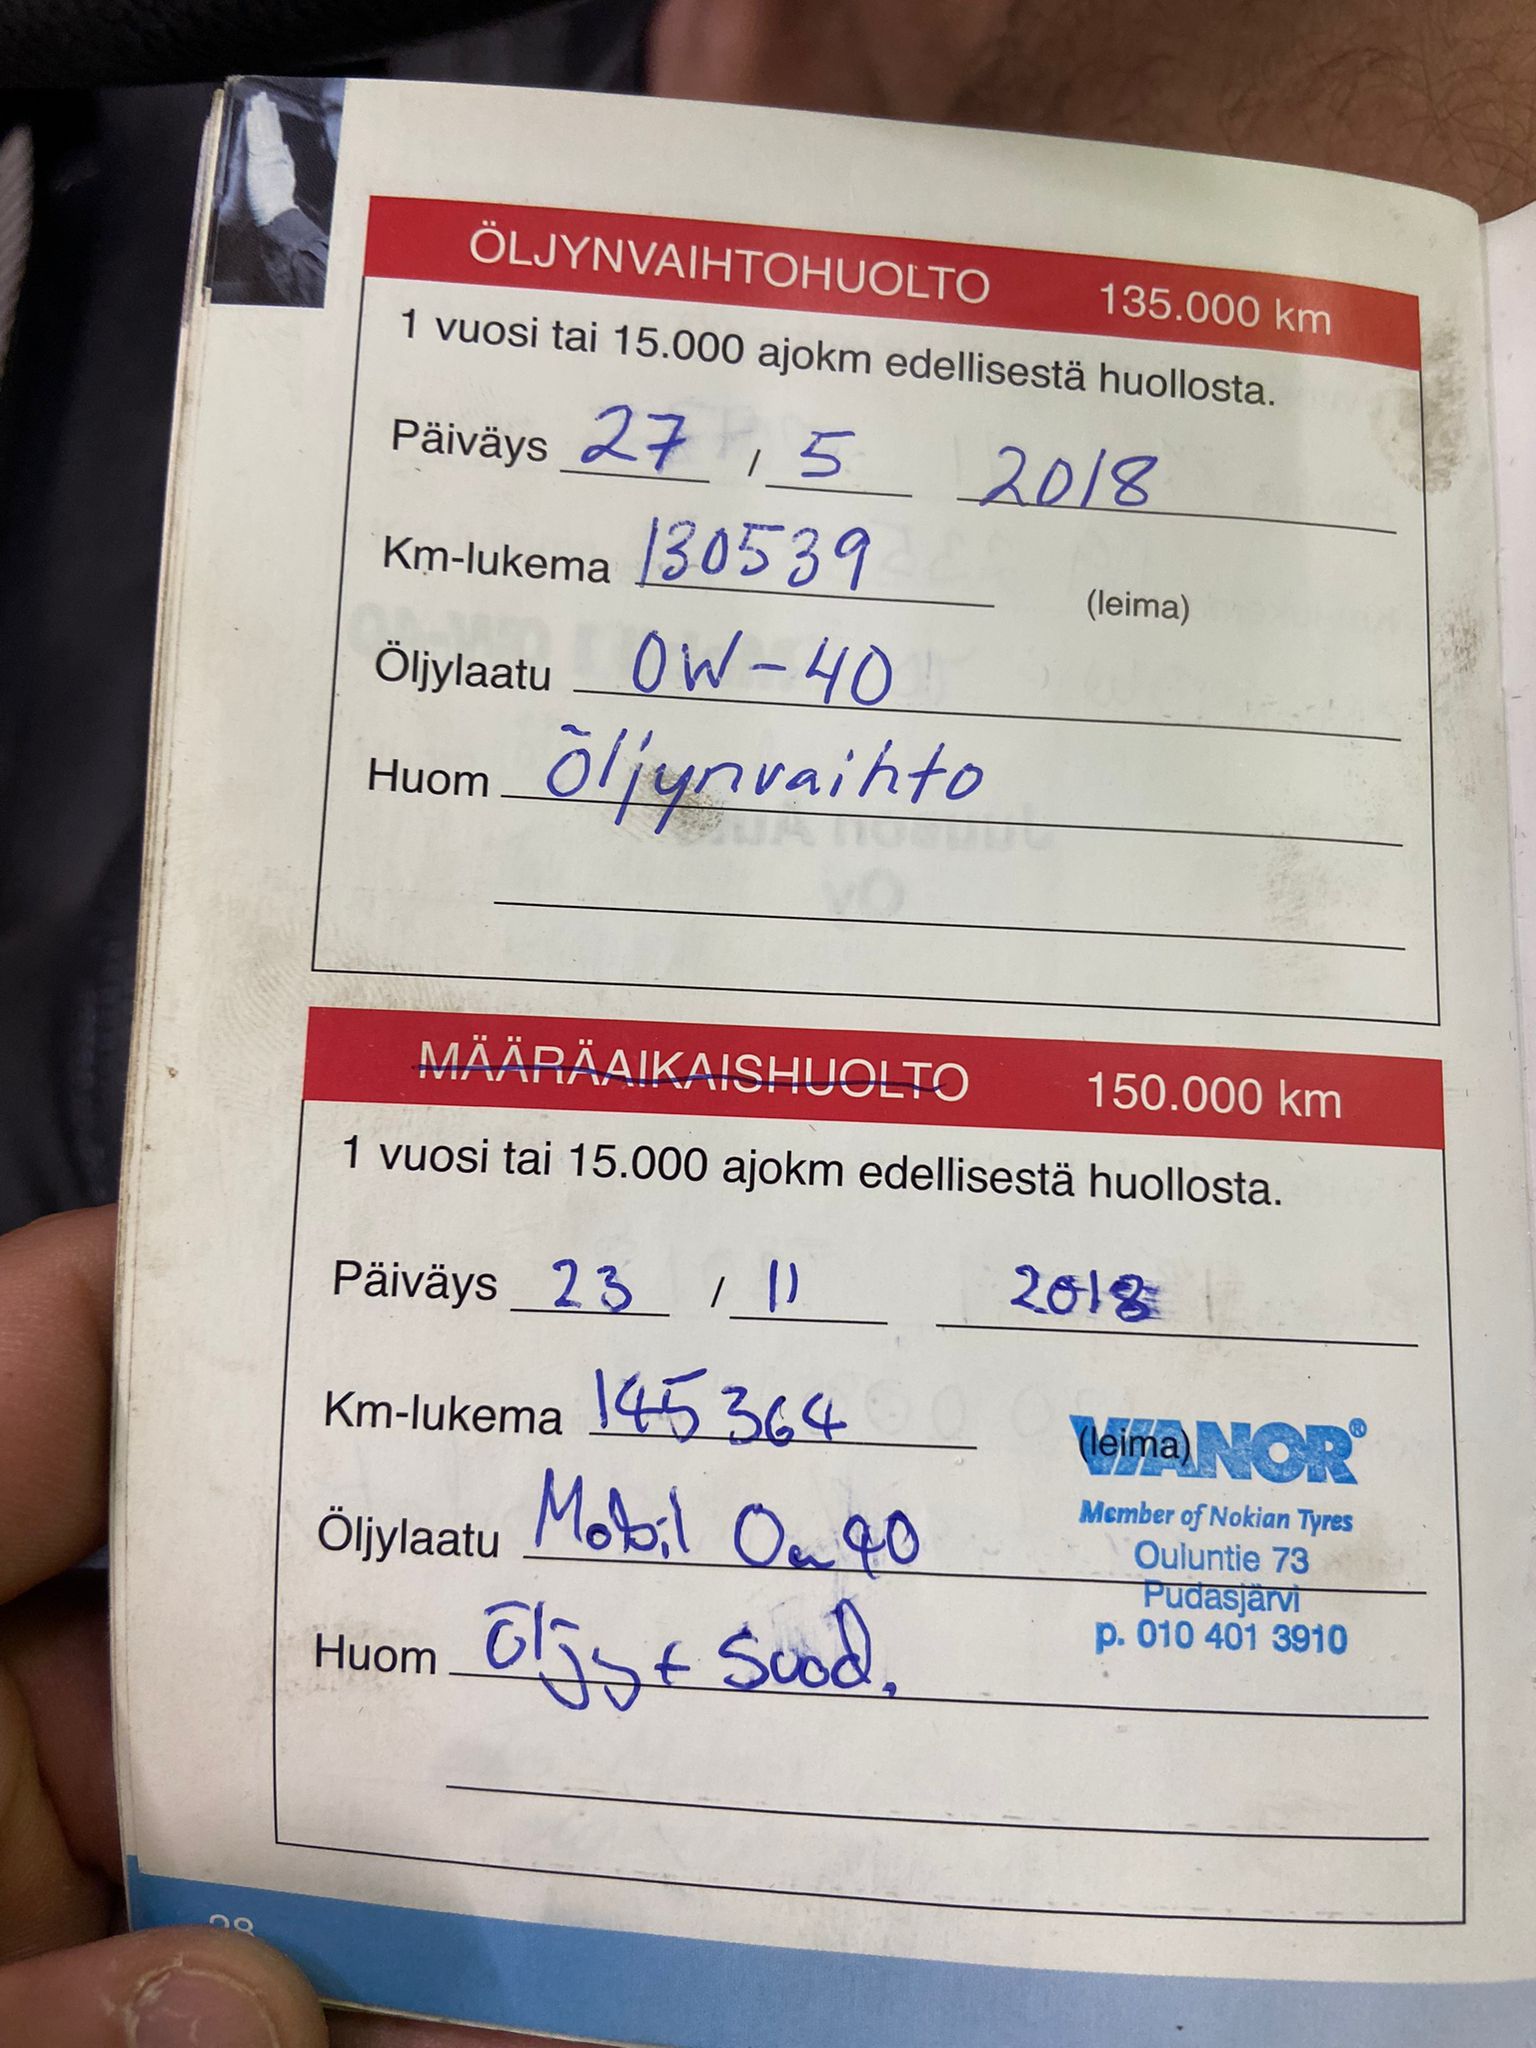 ÖLJYNVAIHTOHUOLTO 135.000 km
1 vuosi tai 15.000 ajokm edellisestä huollosta.
Päiväys 27 / 5 2018
Km-lukema 130539 (leima)
Öljylaatu 0W-40
Huom Öljynvaihto
MÄÄRÄAIKAISHUOLTO 150.000 km
1 vuosi tai 15.000 ajokm edellisestä huollosta.
Päiväys 23 / 11 2018
Km-lukema 145364 (leima) VIANOR®
Member of Nokian Tyres
Öljylaatu Mobil 0w40
Ouluntie 73
Pudasjärvi
Huom Öljy + suod.
p. 010 401 3910
28